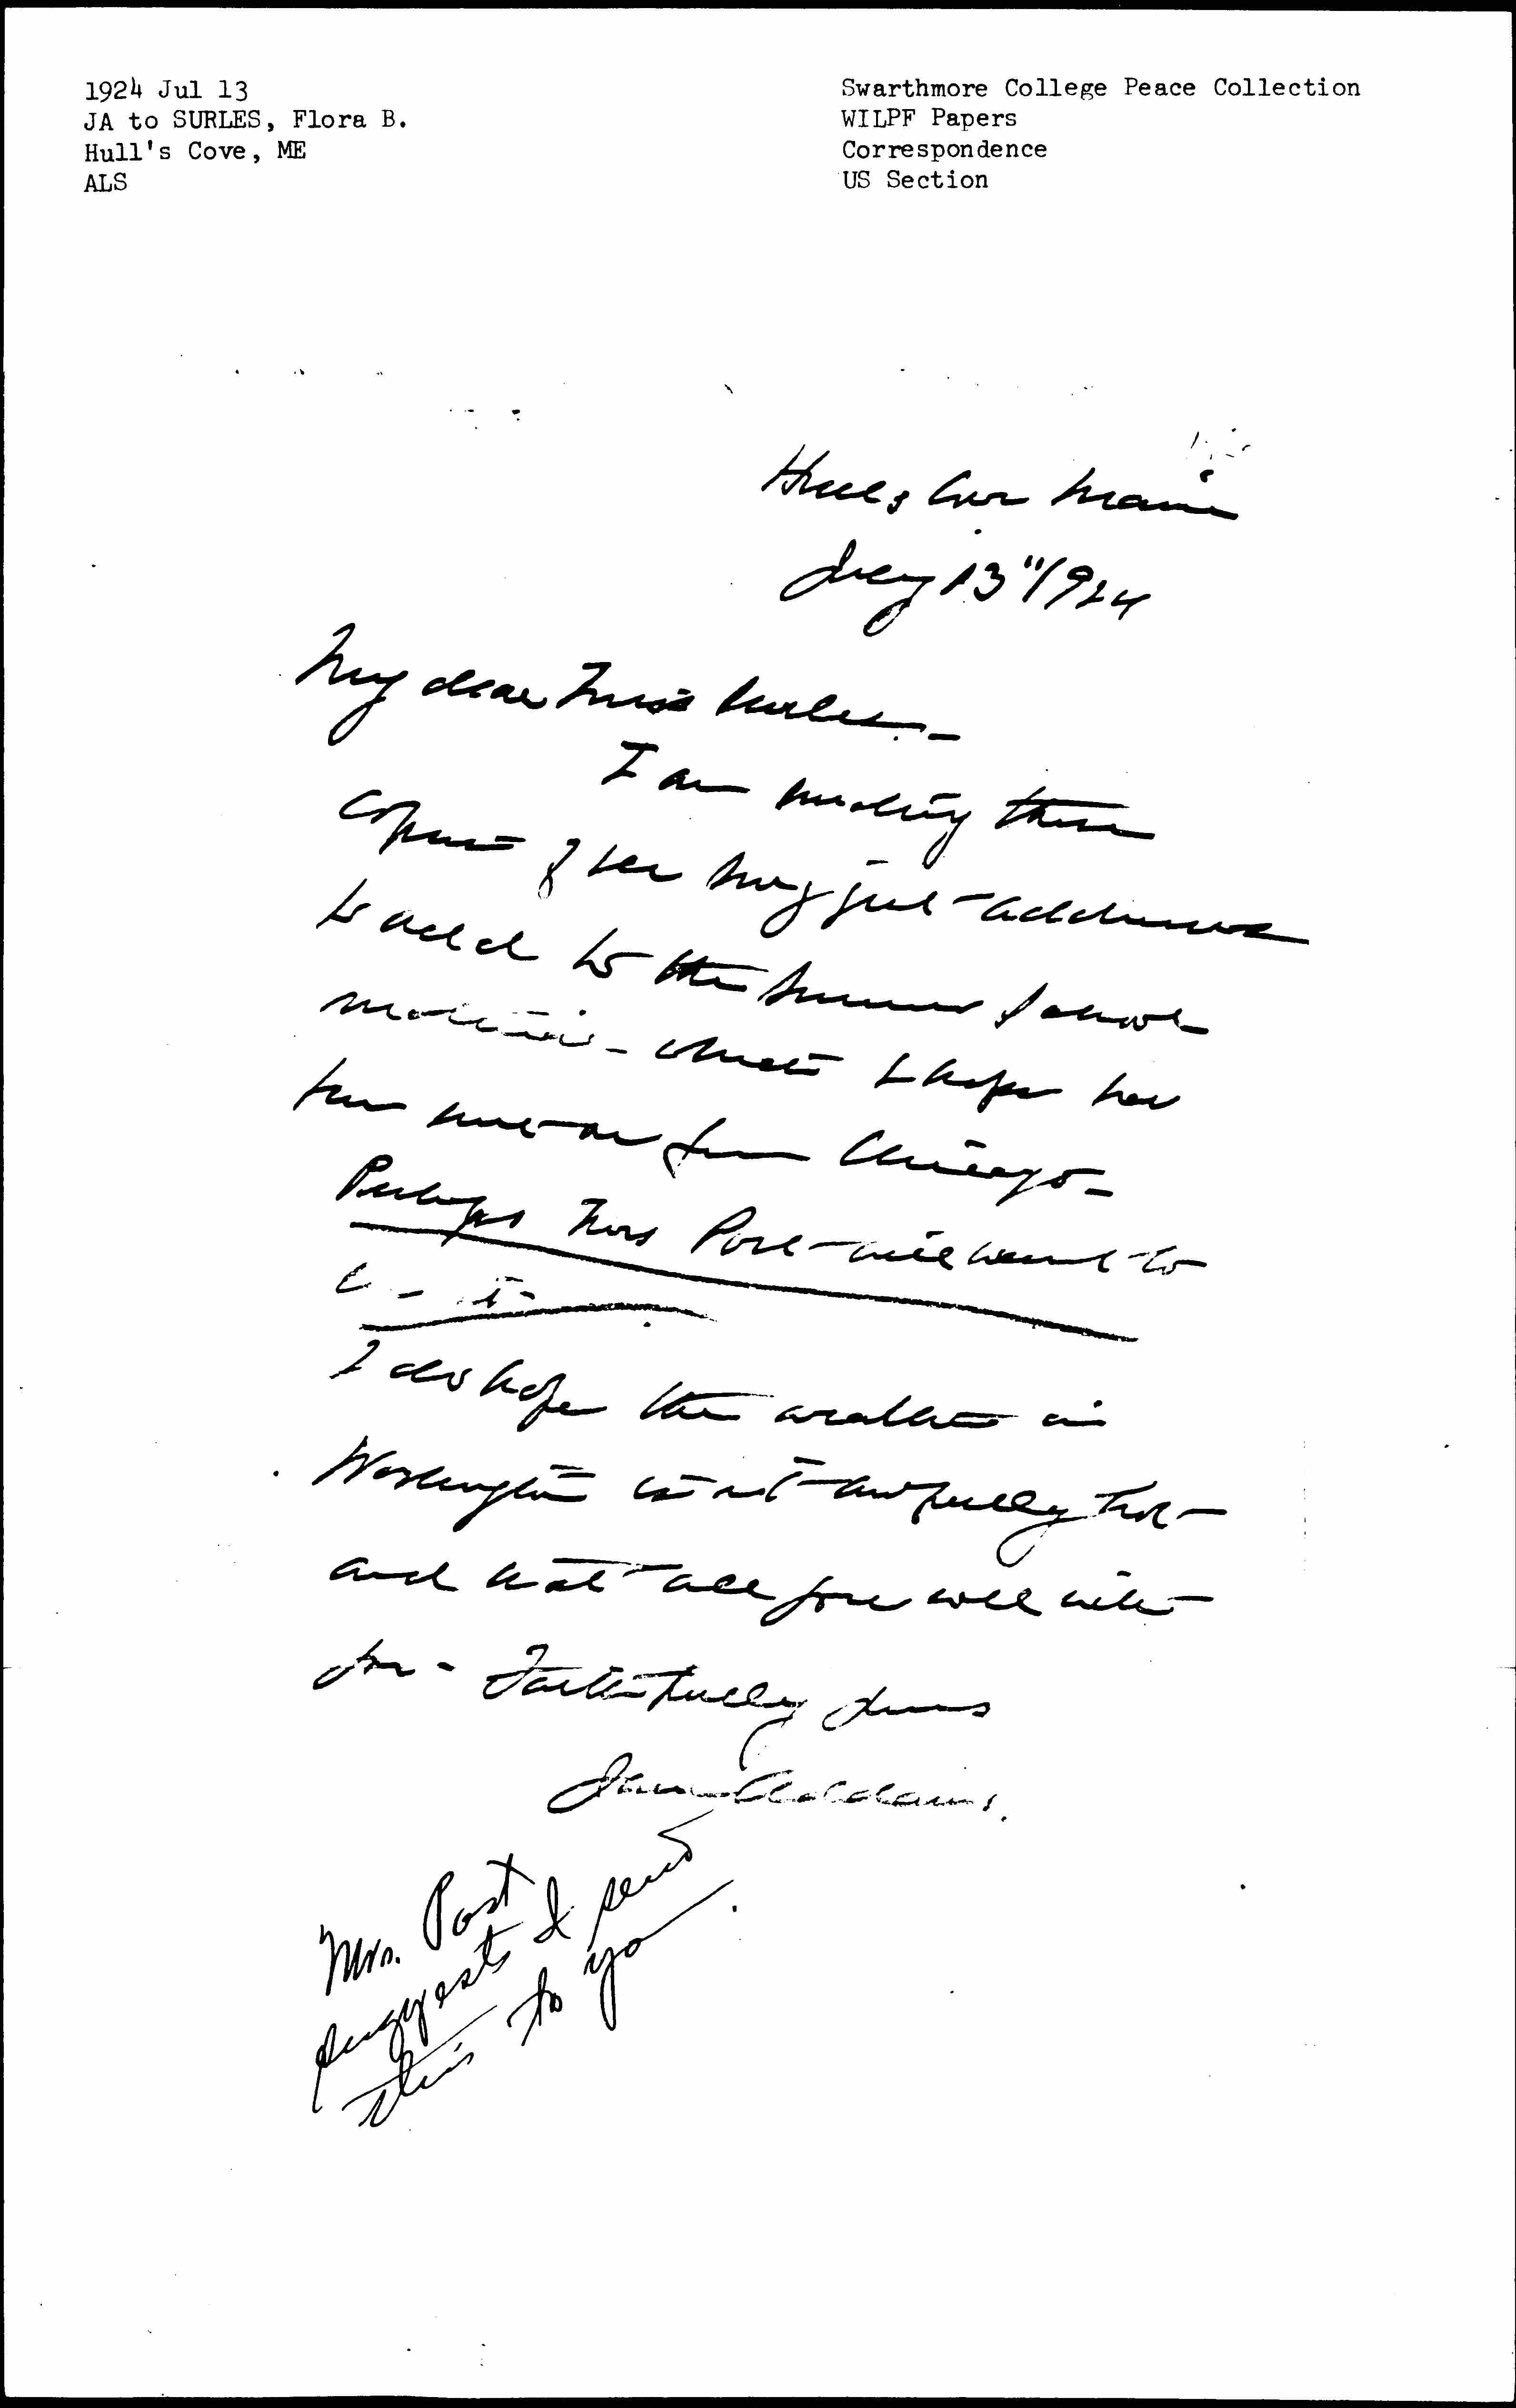 1924 Jul 13
JA to SURLES, Flora B.
Hull's Cove, ME
ALS
Swarthmore College Peace Collection
WILPF Papers
Correspondence
US Section
Hulls Cove Maine
July 13" 1924
My dear Miss Surles -
I am sending these
copies of the address
to add to the Summer School
material - which I hope has
been sent on from Chicago -
Perhaps Mrs Post will want to
it -
I do hope the weather in
Washington is not awfully hot -
and that all goes well with
you - Faithfully yours
Jane Addams.
Mrs. Post
suggests I send
this to yo